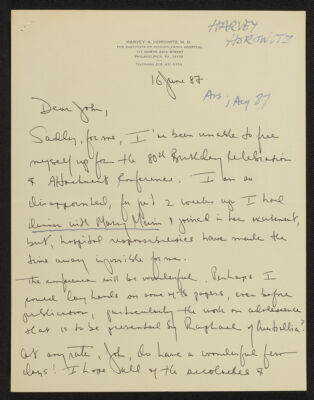 HARVEY A. HOROWITZ, M.D.
THE INSTITUTE OF PENNSYLVANIA HOSPITAL
111 NORTH 49TH STREET
PHILADELPHIA, PA. 19139
HARVEY
HOROWITZ
Ans; Aug 87
16 June 87
Dear John,
Sadly, for me, I've been unable to free
myself up for the 80th Birthday Celebration
& Attachment Conference. I am so
disappointed, for just 2 weeks ago I had
dinner with Mary Main & joined in her excitement,
but, hospital responsibilities have made the
time away impossible for me.
The conference will be wonderful. Perhaps I
could lay hands on some of the papers, even before
publication, particularly the work on adolescence
that is to be presented by
At any rate, John, do have a wonderful few
days! I hope all of the accolades &